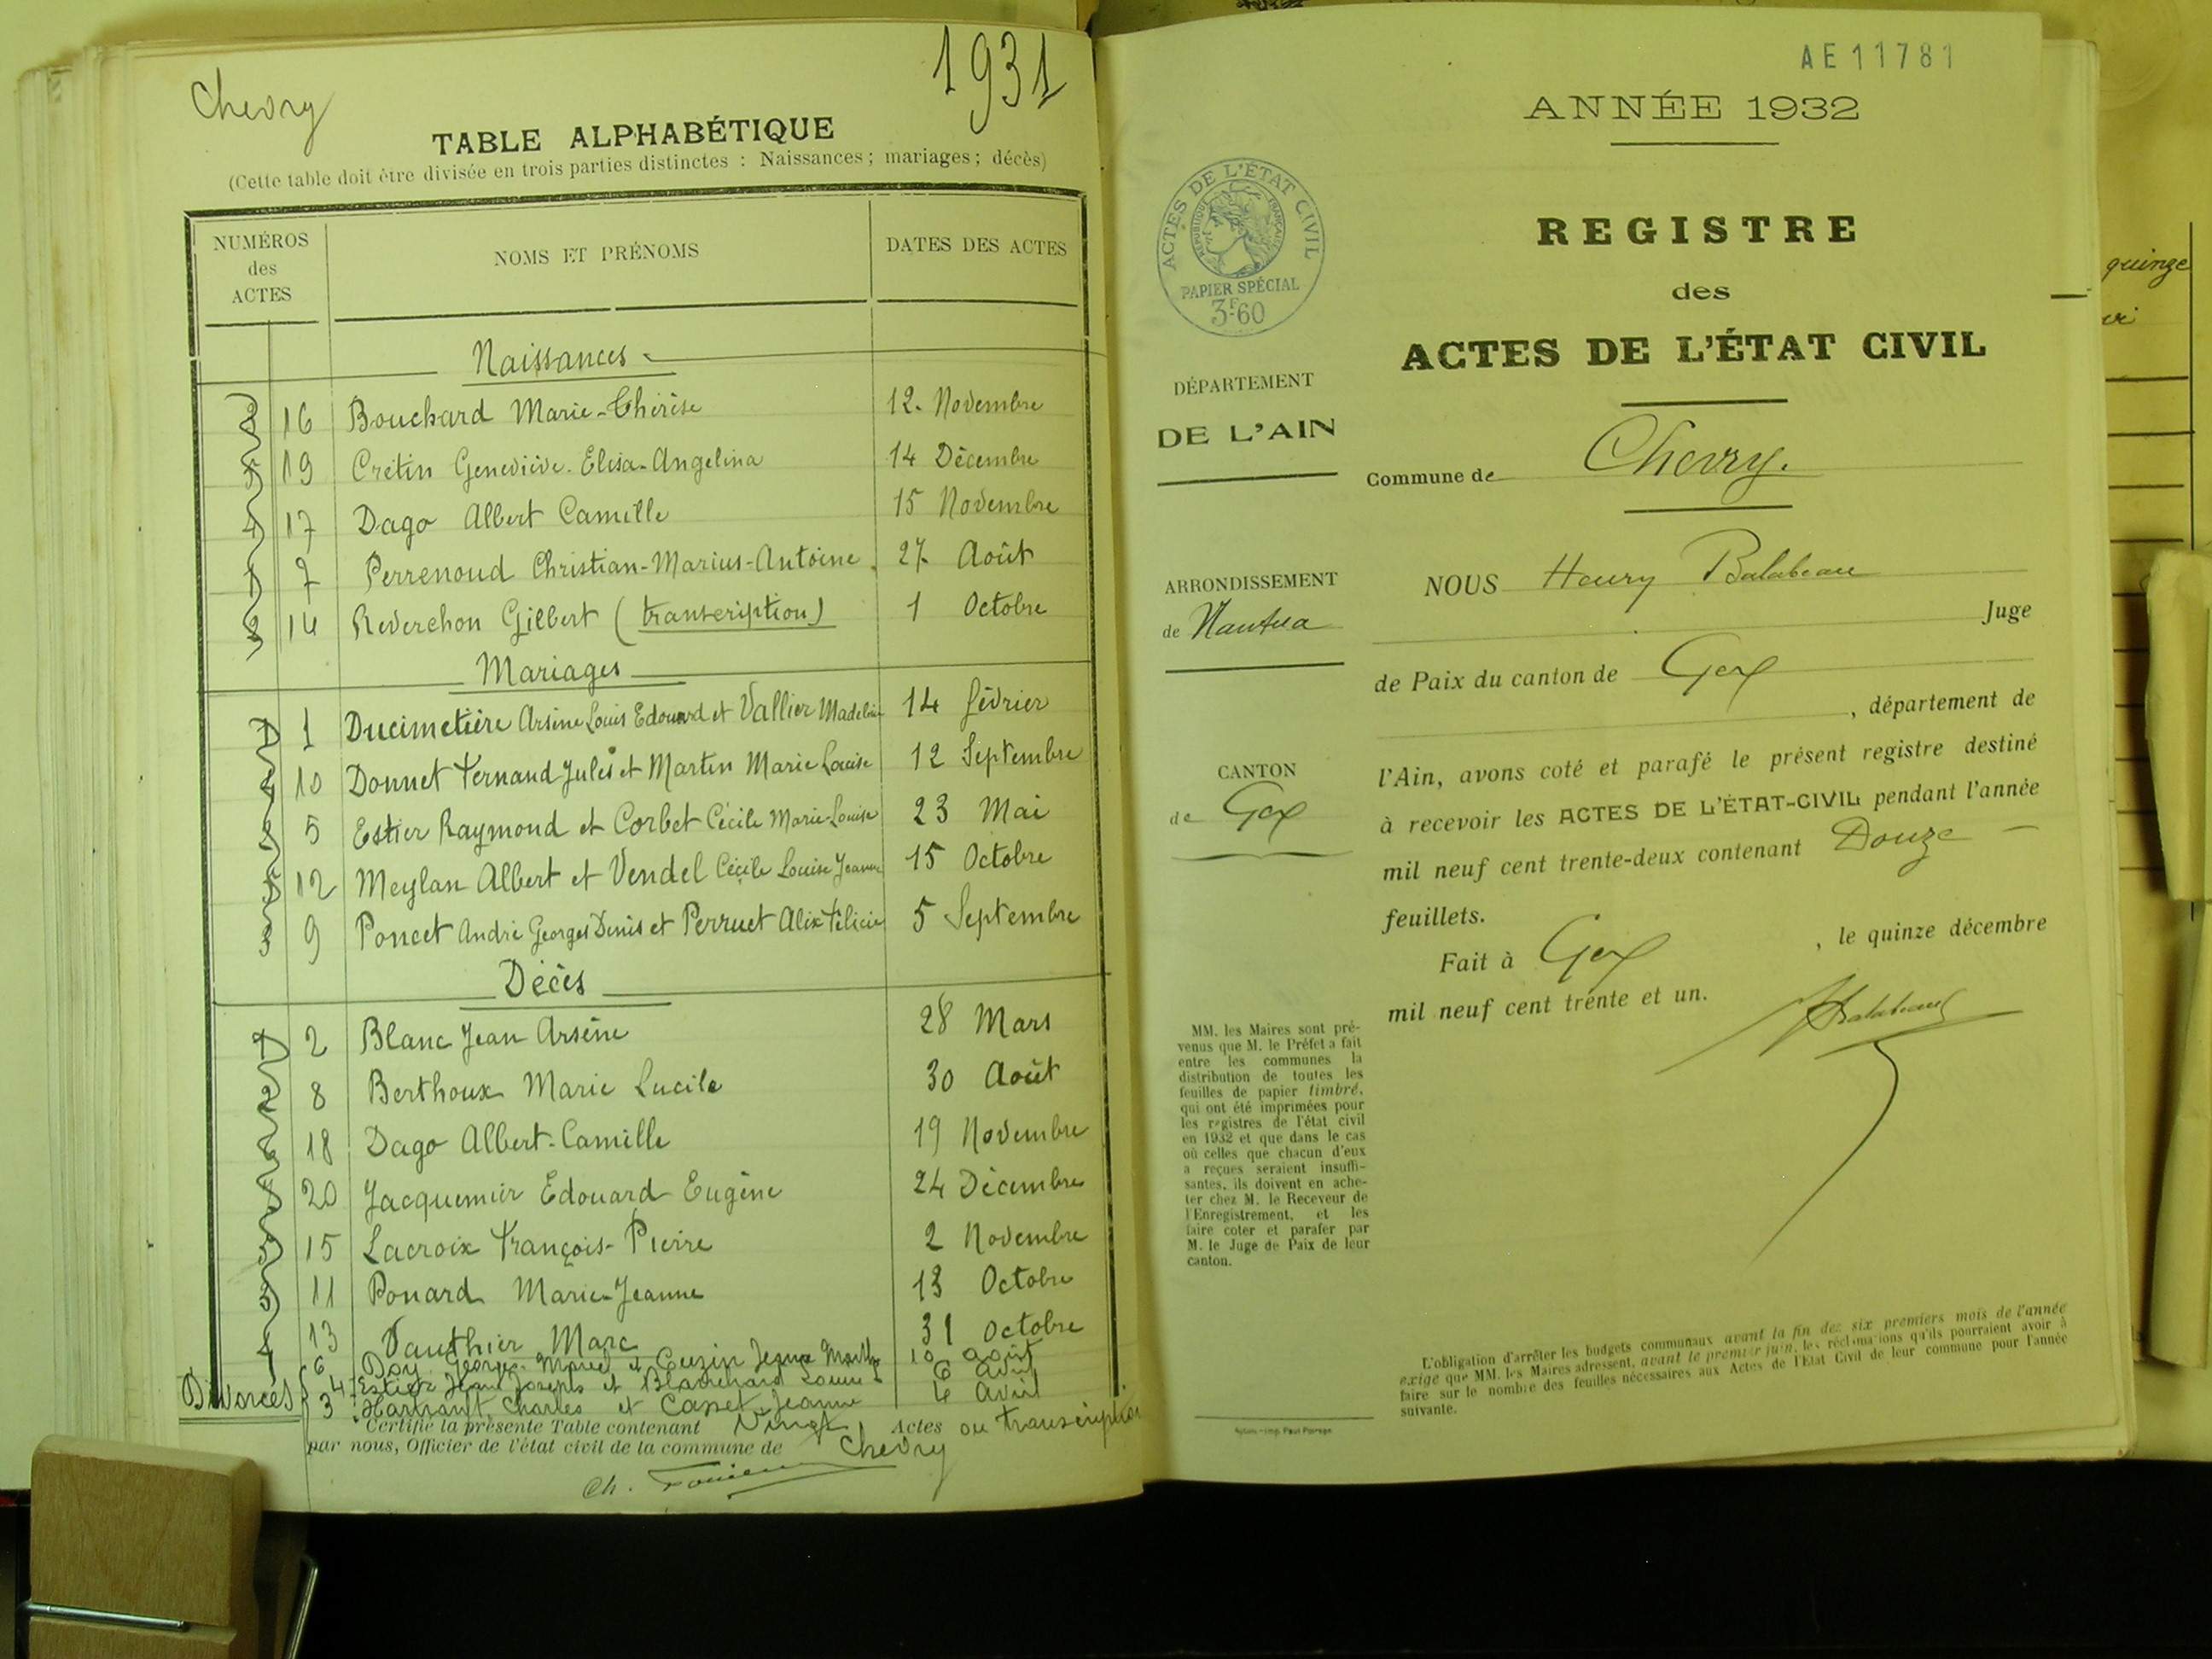 Chevry
1931
TABLE ALPHABÉTIQUE
(Cette table doit être divisée en trois parties distinctes : Naissances ; mariages ; décès)
NUMÉROS des ACTES NOMS ET PRÉNOMS DATES DES ACTES
Naissances
2 16 Bouchard Marie-Thérèse 12. Novembre
5 19 Crétin Geneviève. Elisa-Angelina 14 Décembre
4 17 Dago Albert Camille 15 Novembre
1 7 Perrenoud Christian-Marius-Antoine. 27. Août
2 14 Reverchon Gilbert (transcription) 1 Octobre
Mariages
1 1 Ducimetière Arsène Louis Edouard et Vallier Madeleine 14 février
4 10 Donnet Fernand Jules et Martin Marie Louise 12 Septembre
2 5 Estier Raymond et Corbet Cécile Marie-Louise 23 Mai
5 12 Meylan Albert et Vendel Cécile Louise Jeanne 15 Octobre
3 9 Poncet André Georges Denis et Perruet Alix Félicie 5 Septembre
Décès
1 2 Blanc Jean Arsène 28 Mars
2 8 Berthoux Marie Lucile 30 Août
6 18 Dago Albert-Camille 19 Novembre
20 Jacquemier Edouard Eugène 24 Décembre
5 15 Lacroix François-Pierre 2 Novembre
3 11 Ponard Marie-Jeanne 13 Octobre
4 13 Vauthier Marc 31 Octobre
6 Doy Georges-Marcel et Cuzin Jeanne Marthe 10 août
Divorces 4 Estier Jean Joseph et Blanchard Louise 6 avril
3 Charles et Casset Jeanne 4 avril
Certifié la présente Table contenant Vingt Actes ou transcription
par nous, Officier de l'état civil de la commune de Chevry
Ch.
AE11781
ANNÉE 1932
REGISTRE
des
ACTES DE L'ÉTAT CIVIL
ACTES DE L'ÉTAT CIVIL
RÉPUBLIQUE FRANÇAISE
PAPIER SPÉCIAL
3F60
DÉPARTEMENT
DE L'AIN
ARRONDISSEMENT
de Nantua
CANTON
de Gex
MM. les Maires sont pré-
venus que M. le Préfet a fait
entre les communes la
distribution de toutes les
feuilles de papier timbré,
qui ont été imprimées pour
les registres de l'état civil
en 1932 et que dans le cas
où celles que chacun d'eux
a reçues seraient insuffi-
santes, ils doivent en ache-
ter chez M. le Receveur de
l'Enregistrement, et les
faire coter et parafer par
M. le Juge de Paix de leur
canton.
Commune de Chevry.
NOUS Henry Balabeau
Juge
de Paix du canton de Gex
, département de
l'Ain, avons coté et parafé le présent registre destiné
à recevoir les ACTES DE L'ÉTAT-CIVIL pendant l'année
mil neuf cent trente-deux contenant Douze —
feuillets.
Fait à Gex , le quinze décembre
mil neuf cent trente et un.
L'obligation d'arrêter les budgets communaux avant la fin des six premiers mois de l'année
exige que MM. les Maires adressent, avant le premier juin, les réclamations qu'ils pourraient avoir à
faire sur le nombre des feuilles nécessaires aux Actes de l'Etat Civil de leur commune pour l'année
suivante.
quinze